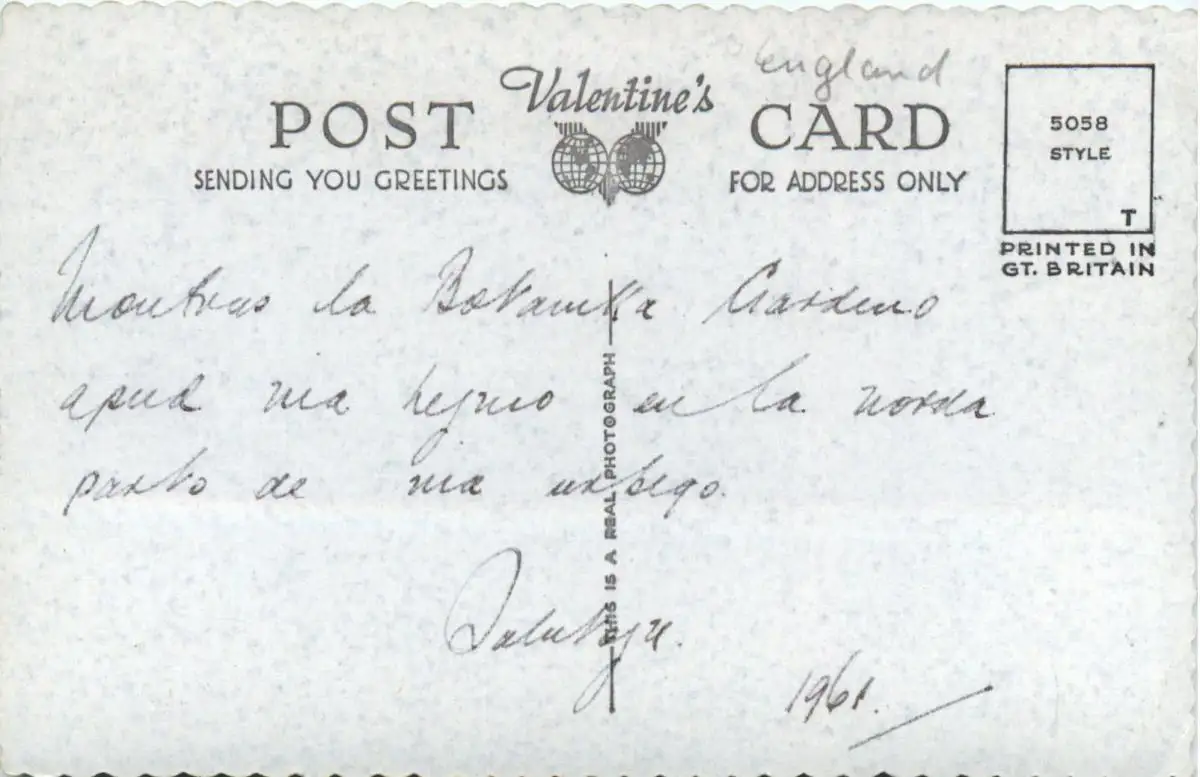 England
Valentine's
POST CARD
SENDING YOU GREETINGS
FOR ADDRESS ONLY
5058
STYLE
T
PRINTED IN
GT. BRITAIN
Montras la Botanika Gardeno
apud mia hejmo en la norda
parto de mia urbego.
Salutojn.
1961.
THIS IS A REAL PHOTOGRAPH